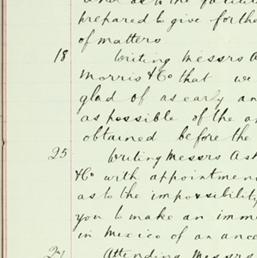 prepared to give for the
of matters
18 Writing Messrs A
Morris & Co that we
glad of as early an
as possible of the a
obtained before the
25 Writing Messrs Ash
& Co with appointmen
as to the impossibility
you to make an imm
in Mexico of an ance
27 Attending Messrs